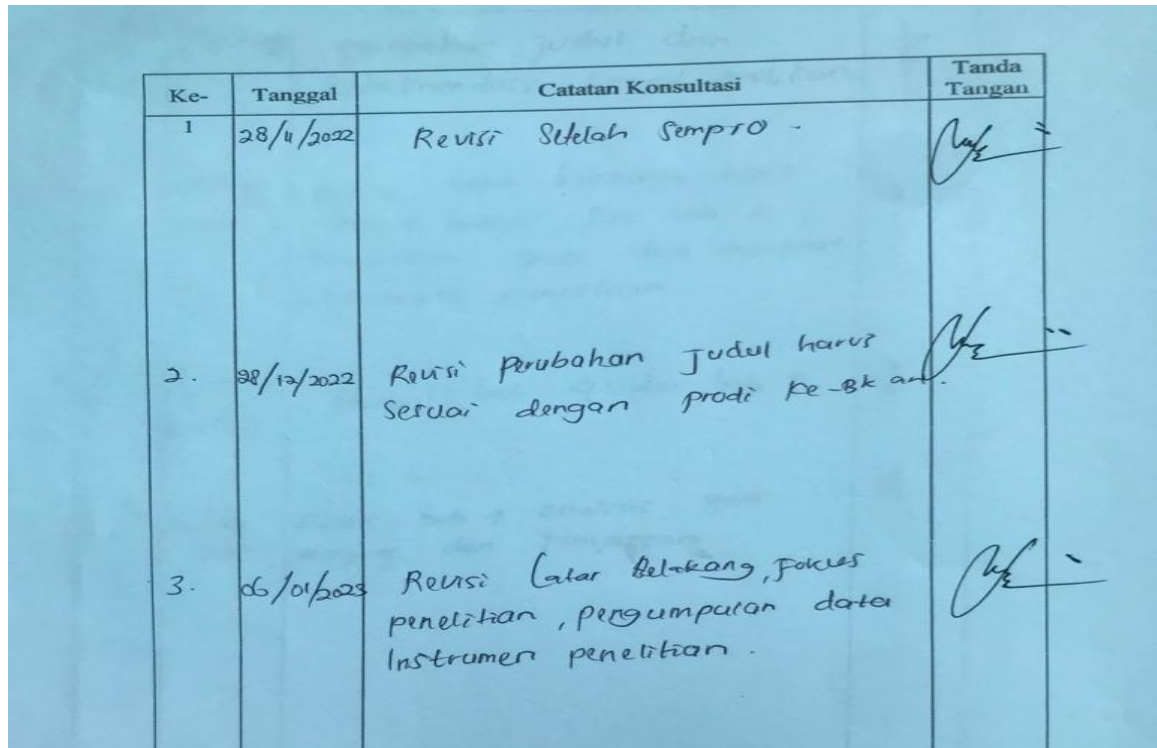 Ke- Tanggal Catatan Konsultasi Tanda Tangan
1 28/11/2022 Revisi Setelah Sempro -
2. 28/12/2022 Revisi Perubahan Judul harus
sesuai dengan prodi Ke-BK an.
3. 06/01/2023 Revisi Latar Belakang, Fokus
penelitian, pengumpulan data
Instrumen penelitian.